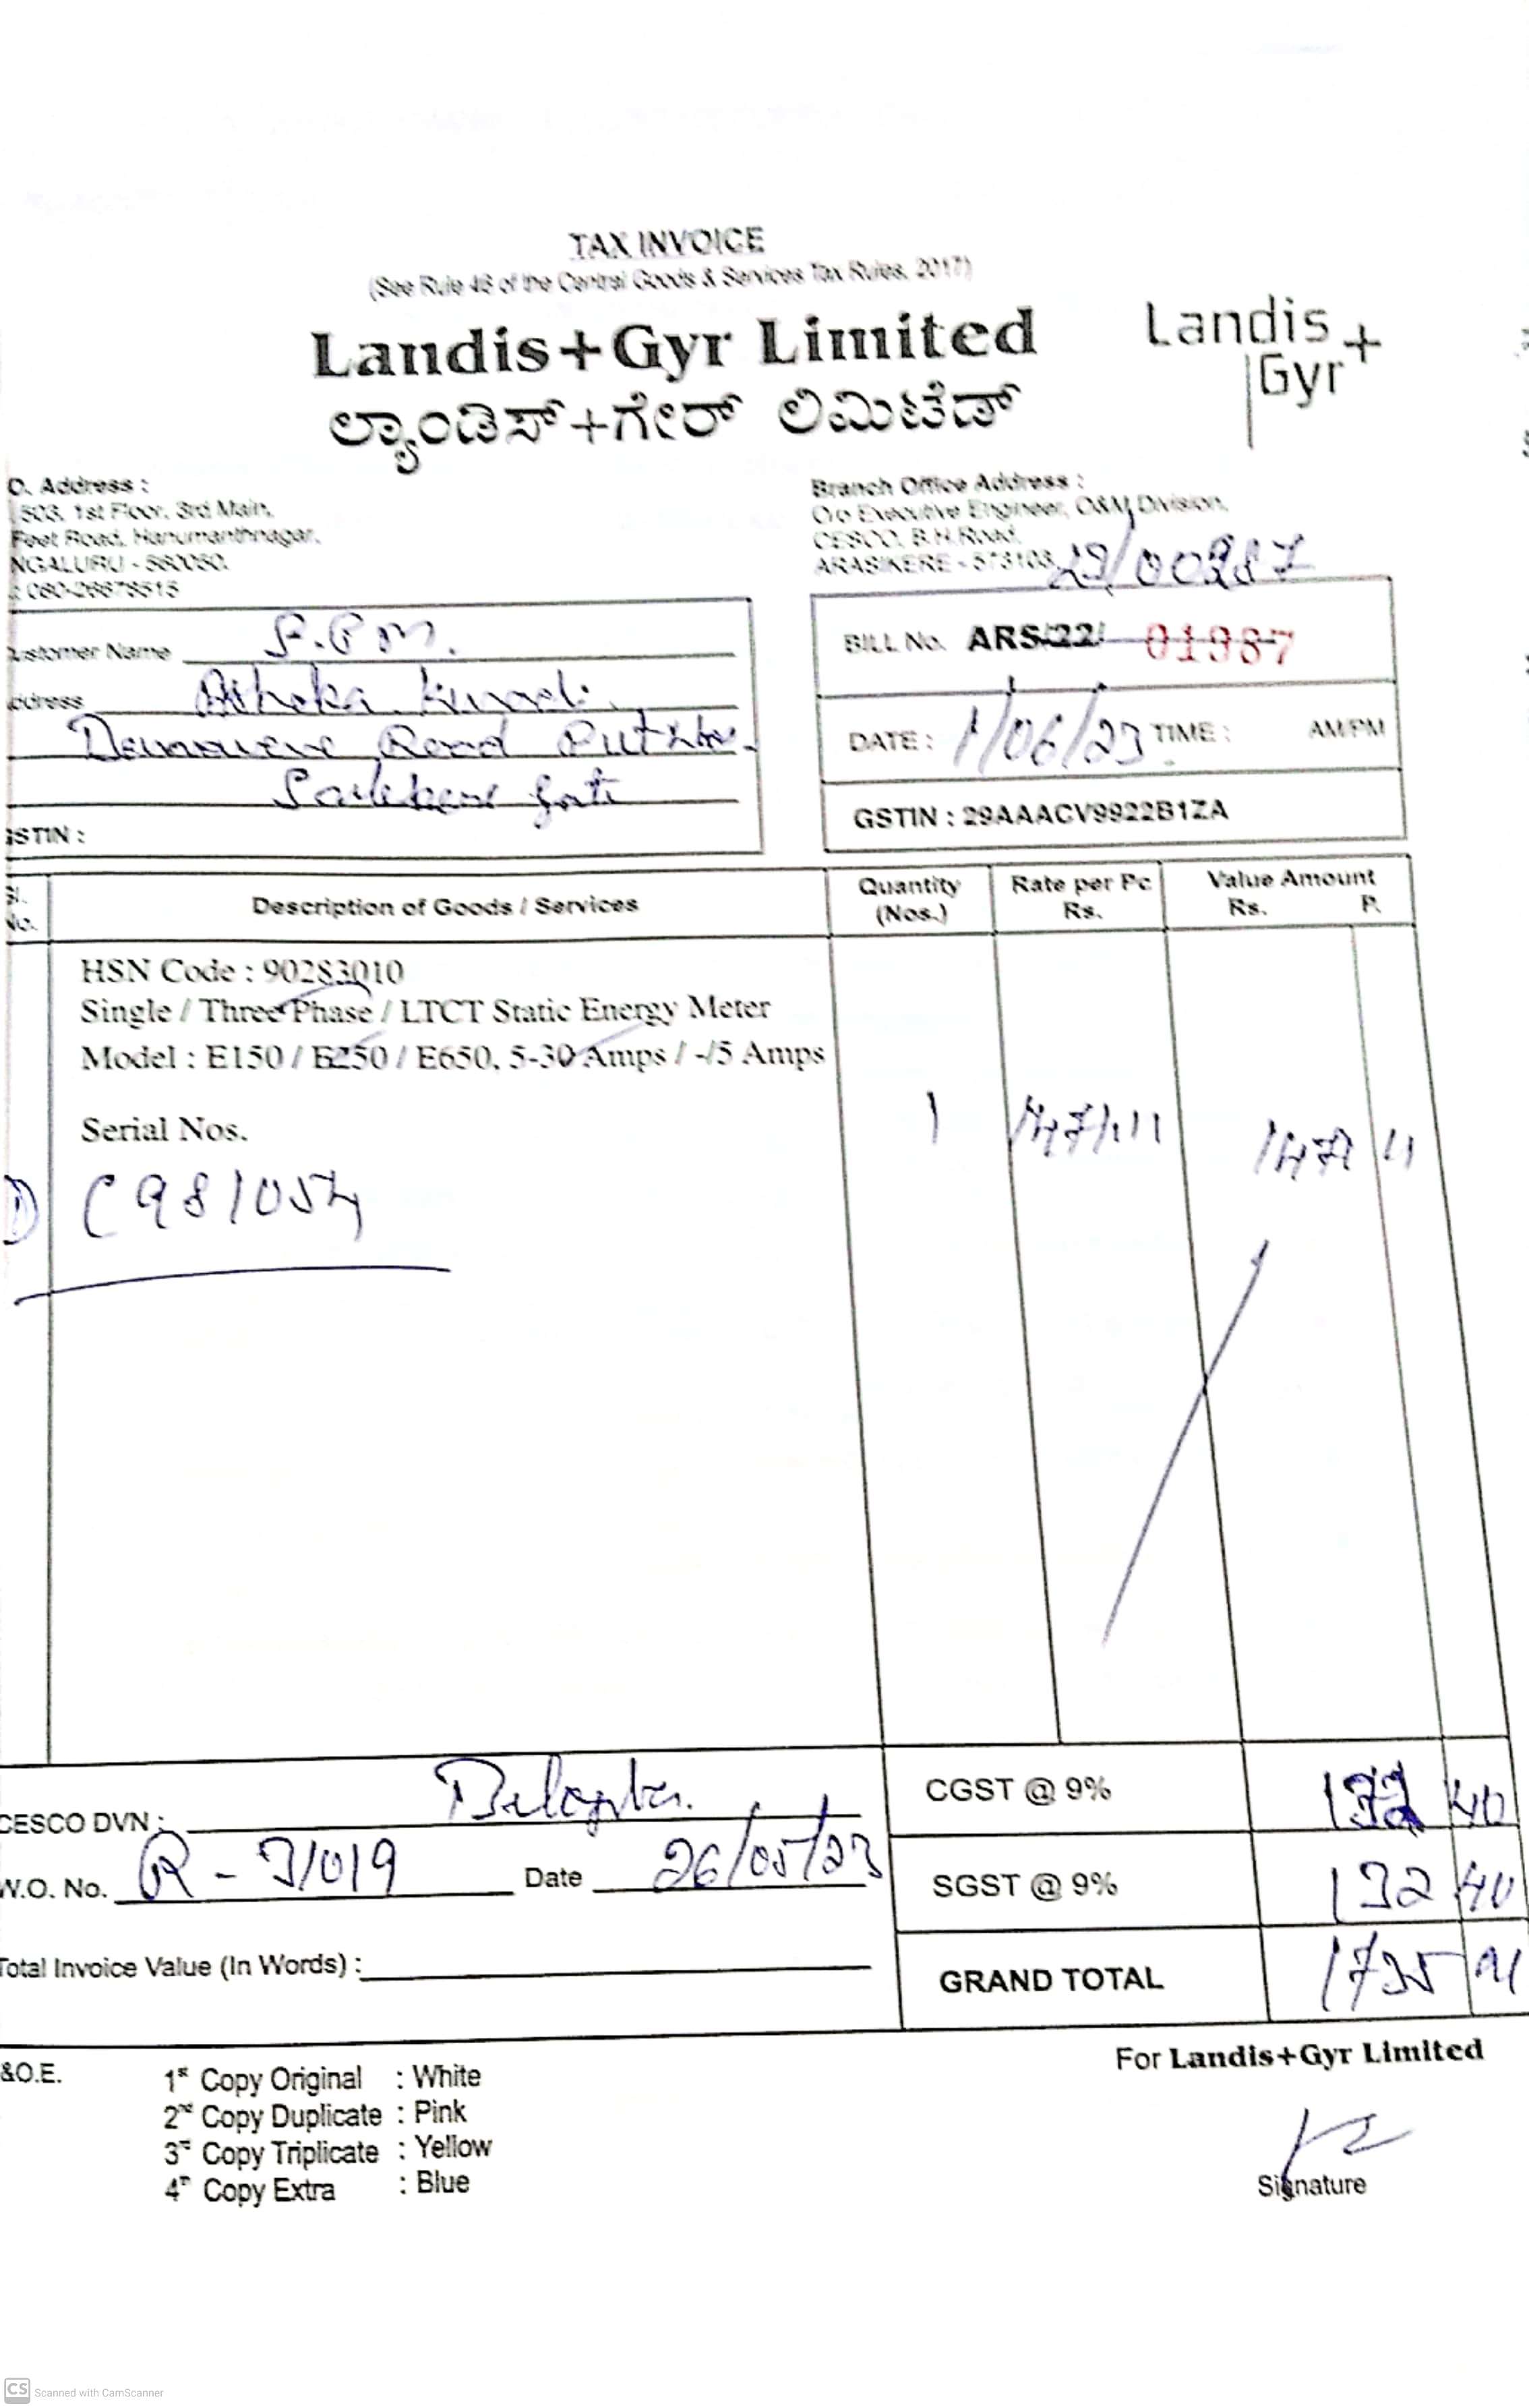 TAX INVOICE
(See Rule 46 of the Central Goods & Services Tax Rules, 2017)
Landis+Gyr Limited
ಲ್ಯಾಂಡಿಸ್+ಗೇರ್ ಲಿಮಿಟೆಡ್
Landis+
Gyr
O. Address :
503, 1st Floor, 3rd Main,
Feet Road, Hanumanthnagar,
NGALURU - 560050.
: 080-26678515
Branch Office Address :
O/o Executive Engineer, O&M Division,
CESCO, B.H.Road,
ARASIKERE - 573103
23/00987
ustomer Name
ddress Ashoka
Road
GSTIN :
BILL No. ARS/22/ 01987
DATE : 1/06/23 TIME : AM/PM
GSTIN : 29AAACV9922B1ZA
Sl. No. Description of Goods / Services Quantity (Nos.) Rate per Pc Rs. Value Amount Rs. P.
HSN Code : 90283010
Single / Three Phase / LTCT Static Energy Meter
Model : E150 / E250 / E650, 5-30 Amps / -/5 Amps
Serial Nos. 1 1471.11 1471 11
1) C981054
CESCO DVN :
W.O. No. R - 31019 Date 26/05/23
Total Invoice Value (In Words) :
CGST @ 9% 132 40
SGST @ 9% 132 40
GRAND TOTAL 1735 91
&O.E.
1st Copy Original : White
2nd Copy Duplicate : Pink
3rd Copy Triplicate : Yellow
4th Copy Extra : Blue
For Landis+Gyr Limited
Signature
CS Scanned with CamScanner